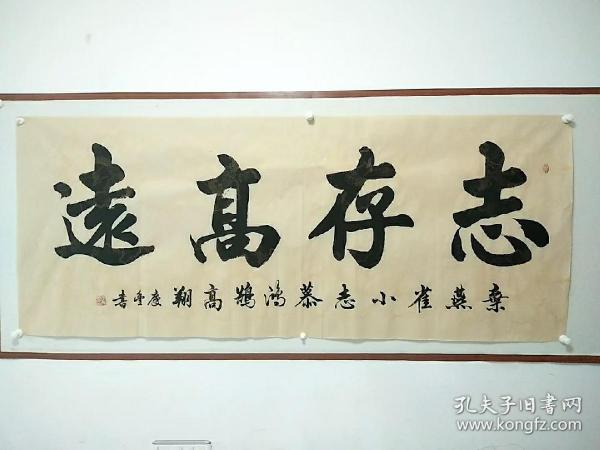 志存高遠
棄燕雀小志慕鴻鵠高翔 慶豐書
孔夫子旧書网
www.kongfz.com